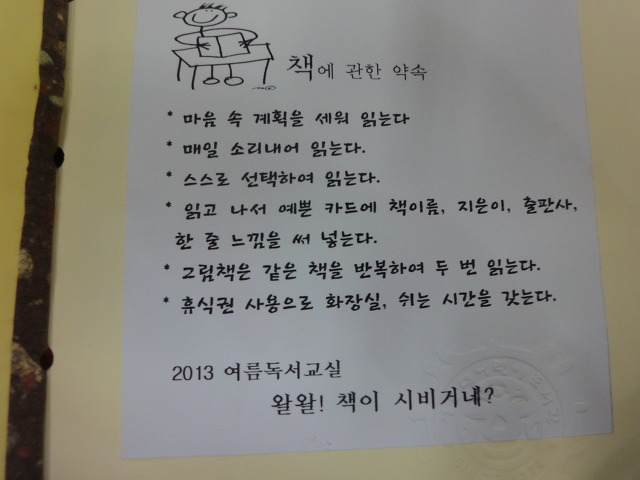 책에 관한 약속
* 마음 속 계획을 세워 읽는다
* 매일 소리내어 읽는다.
* 스스로 선택하여 읽는다.
* 읽고 나서 예쁜 카드에 책이름, 지은이, 출판사,
한 줄 느낌을 써 넣는다.
* 그림책은 같은 책을 반복하여 두 번 읽는다.
* 휴식권 사용으로 화장실, 쉬는 시간을 갖는다.
2013 여름독서교실
왈왈! 책이 시비거네?